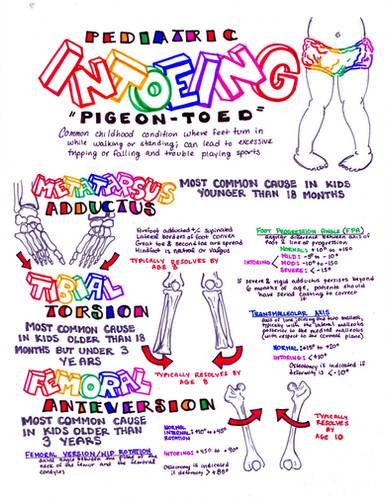 PEDIATRIC
INTOEING
"PIGEON-TOED"
Common childhood condition where feet turn in
while walking or standing; can lead to excessive
tripping or falling and trouble playing sports
METATARSUS
ADDUCTUS
MOST COMMON CAUSE IN KIDS
YOUNGER THAN 18 MONTHS
Forefoot adducted +/- supinated
Lateral borders of foot convex
Great toe & second toe are spread
Hindfoot is neutral or valgus
TYPICALLY RESOLVES BY
AGE
FOOT PROGRESSION ANGLE (FPA)
angular difference between axis of
foot & line of progression
NORMAL:
INTOEING
MILD: -5° to -10°
MOD: -10° to -15°
SEVERE: < -15°
If severe & rigid adductus persists beyond
6 months of age, patients should
have serial casting to correct
TIBIAL
TORSION
MOST COMMON CAUSE
IN KIDS OLDER THAN 18
MONTHS BUT UNDER 3
YEARS
TYPICALLY RESOLVES BY
AGE 8
TRANSMALLEOLAR AXIS
axis of line joining the two malleoli,
typically with the lateral malleolus
posterior to the medial malleolus
(with respect to the coronal plane)
NORMAL: +15° to +20°
INTOEING: < +10°
Osteotomy is indicated
if deformity is < -10°
FEMORAL
ANTEVERSION
MOST COMMON CAUSE
IN KIDS OLDER THAN
3 YEARS
FEMORAL VERSION/HIP ROTATION
axial angle between the plane of the
neck of the femur and the femoral
condyles
NORMAL
INTERNAL:
ROTATION
INTOEING:
Osteotomy is indicated
if deformity > +80°
TYPICALLY
RESOLVES
BY
AGE 10